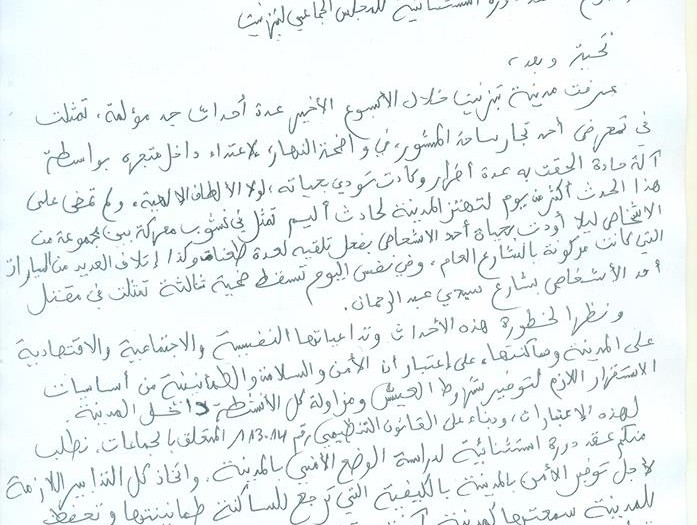 دورة استثنائية للمجلس الجماعي لتيزنيت
تحية وبعد،
عرفت مدينة تيزنيت خلال الأسبوع الأخير عدة أحداث جد مؤلمة، تمثلت
في تعرض أحد تجار ساحة المشور، في واضحة النهار، لاعتداء داخل متجره بواسطة
آلة حادة ألحقت به عدة أضرار وكادت تودي بحياته، لولا الألطاف الإلهية، ولم تمض على
هذا الحدث أكثر من يوم لتهتز المدينة لحادث أليم تمثل في نشوب معركة بين مجموعة من
الأشخاص ليلا أودت بحياة أحد الأشخاص بفعل تلقيه لعدة طعنات وكذا إتلاف العديد من السيارات
التي كانت مركونة بالشارع العام، وفي نفس اليوم تسقط ضحية ثالثة تمثلت في مقتل
أحد الأشخاص بشارع سيدي عبد الرحمان.
ونظرا لخطورة هذه الأحداث وتداعياتها النفسية والاجتماعية والاقتصادية
على المدينة وساكنتها، على إعتبار أن الأمن والسلامة والطمأنينة من أساسيات
الاستقرار اللازم لتوفير شروط العيش ومزاولة كل الأنشطة داخل المدينة.
لهذه الإعتبارات، وبناء على القانون التنظيمي رقم 113.14 المتعلق بالجماعات، نطلب
منكم عقد دورة استثنائية لدراسة الوضع الأمني بالمدينة، واتخاذ كل التدابير اللازمة
لأجل توفير الأمن بالمدينة بالكيفية التي ترجع للساكنة طمأنينتها وتحفظ
للمدينة سمعتها